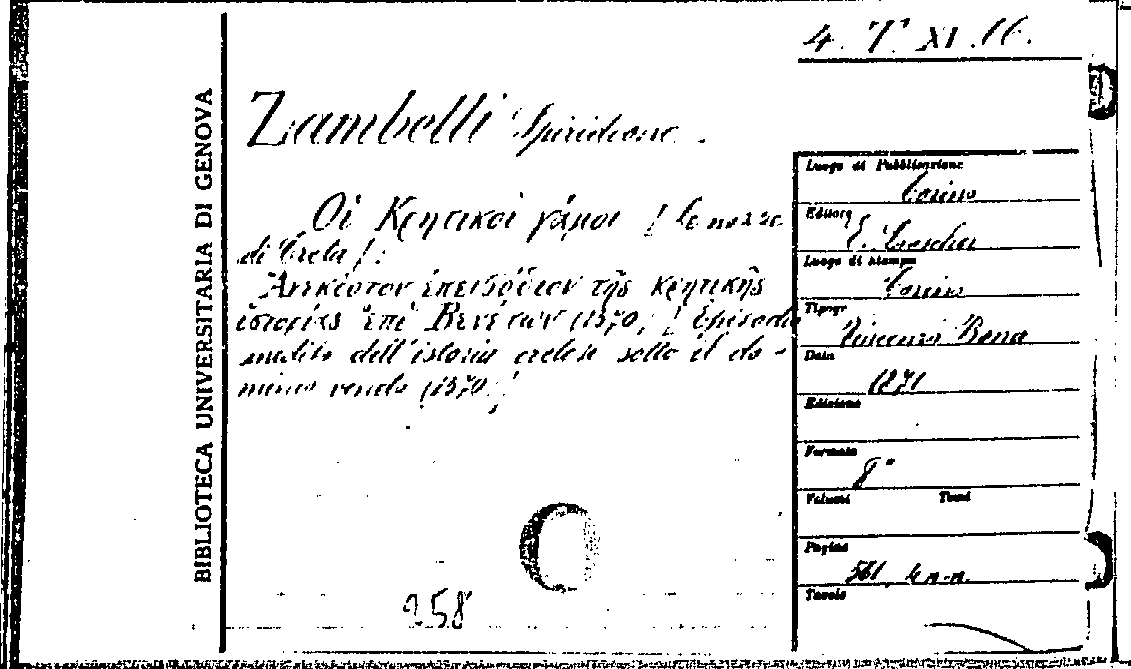 BIBLIOTECA UNIVERSITARIA DI GENOVA
4. T. XI. 16.
Zambelli Spiridione.
Οἱ Κρητικοὶ γάμοι [Le nozze
di Creta]:
Ἀνέκδοτον ἐπεισόδιον τῆς κρητικῆς
ἱστορίας ἐπὶ Βενέτων (1570) [Episodio
inedito dell'istoria cretese sotto il do-
minio veneto (1570)]
258
Luogo di Pubblicazione
Torino
Editore
E. Loescher
Luogo di stampa
Torino
Tipogr
Vincenzo Bona
Data
1871
Edizione
Formato
8°
Volumi Tomi
Pagine
561, 4 n.n.
Tavole